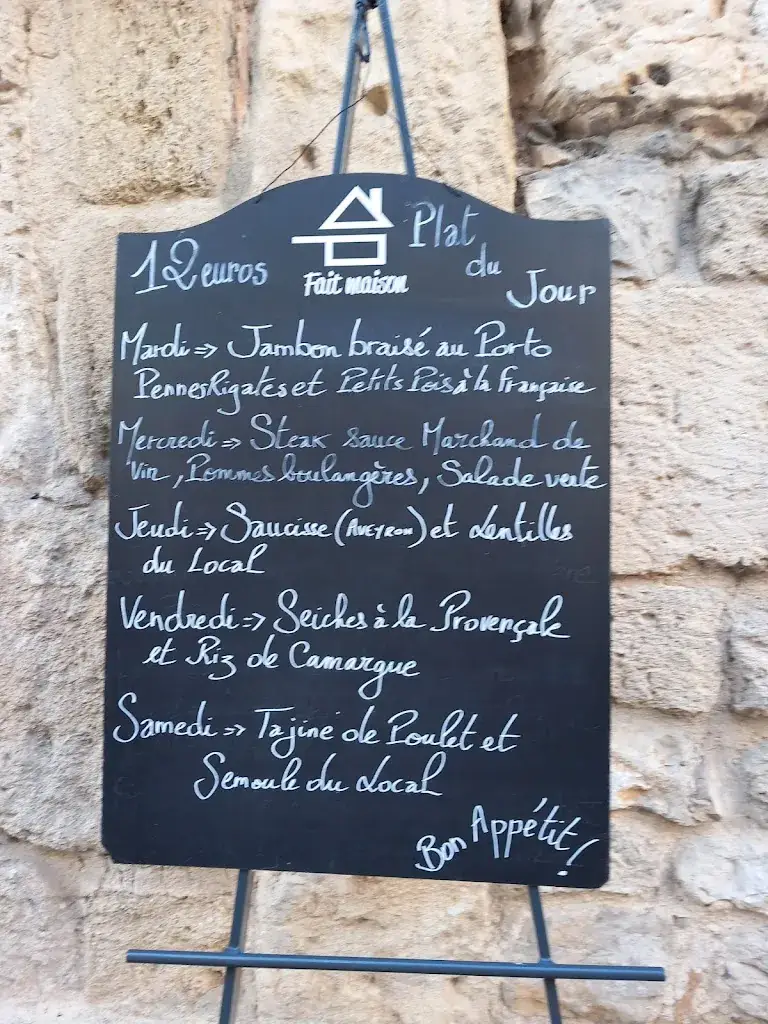 12 euros
Fait maison
Plat
du
Jour
Mardi => Jambon braisé au Porto
Pennes Rigates et Petits Pois à la Française
Mercredi => Steak sauce Marchand de
Vin, Pommes boulangères, Salade verte
Jeudi => Saucisse (AVEYRON) et Lentilles
du Local
Vendredi => Seiches à la Provençale
et Riz de Camargue
Samedi => Tajine de Poulet et
Semoule du Local
Bon Appétit!